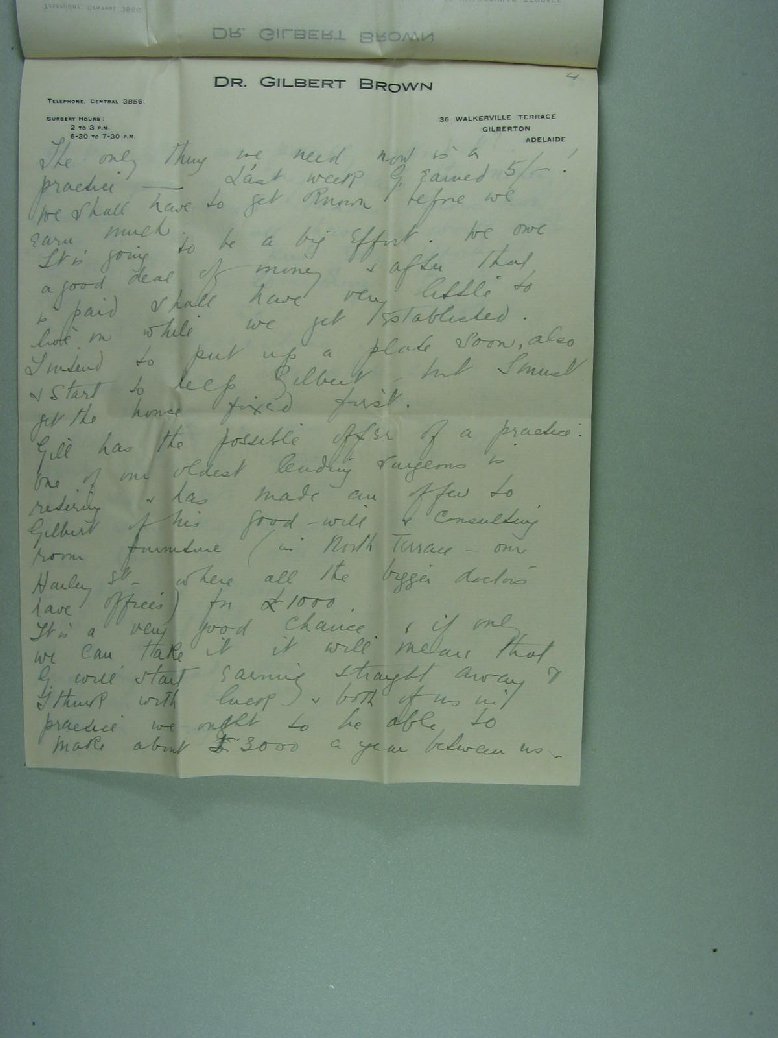 DR. GILBERT BROWN
4
DR. GILBERT BROWN
TELEPHONE, CENTRAL 3886
SURGERY HOURS:
2 TO 3 P.M.
6-30 TO 7-30 P.M.
36 WALKERVILLE TERRACE
GILBERTON
ADELAIDE
The only thing we need now is a
practice — Last week G earned 5/- !
We shall have to get known before we
earn much.
It is going to be a big effort. We owe
a good deal of money & after that
is paid shall have very little to
live on while we get established.
I intend to put up a plate soon, also
& start to help Gilbert but I must
get the house fixed first.
Gill has the possible offer of a practice.
One of our oldest leading surgeons is
retiring & has made an offer to
Gilbert of his good-will & consulting
room furniture (in North Terrace - our
Harley St - where all the bigger doctors
have offices) for £1000.
It is a very good chance & if only
we can take it it will mean that
G will start earning straight away &
I think with luck & both of us in
practice we ought to be able to
make about £3000 a year between us -